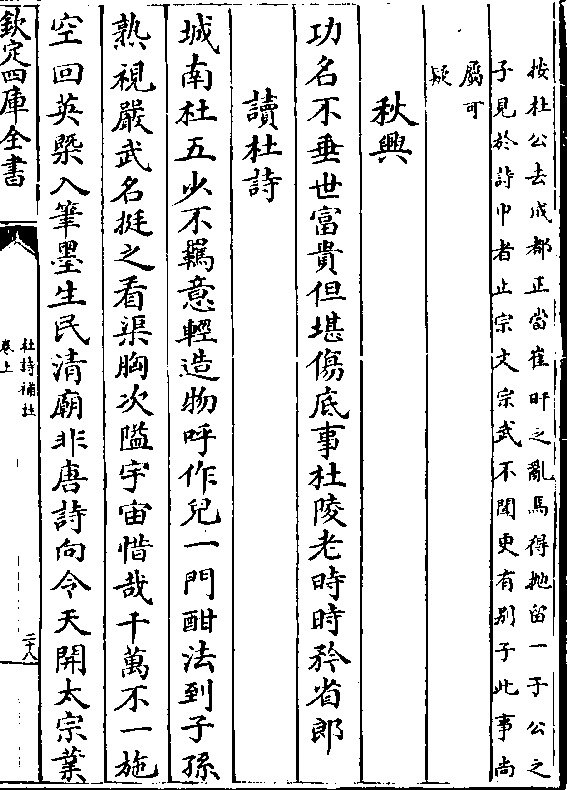 按杜公去成都正當崔旰之亂焉得抛留一子公之
子見於詩中者止宗文宗武不聞更有别子此事尚
屬可
疑
秋興
功名不垂世富貴但堪傷底事杜陵老時時矜省郎
讀杜詩
城南杜五少不羈意輕造物呼作兒一門酣法到子孫
熟視嚴武名挺之看渠胸次隘宇宙惜哉千萬不一施
空回英槩入筆墨生民清廟非唐詩向令天開太宗業
欽定四庫全書
杜詩補註
卷上
二十八